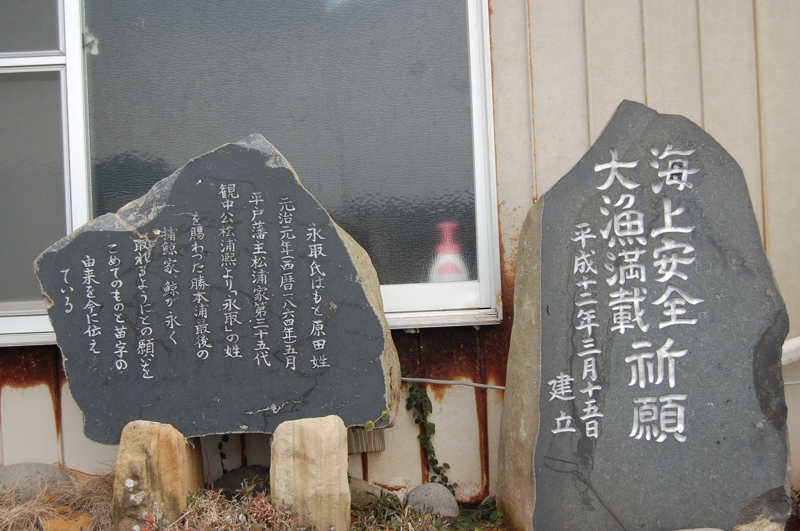 永取氏はもと原田姓
元治元年(西暦一八六四年)五月
平戸藩主松浦家第三十五代
観中公松浦熈より「永取」の姓
を賜わった勝本浦最後の
捕鯨家 鯨が永く
取れるようにとの願いを
こめてのものと苗字の
由来を今に伝え
ている
海上安全
大漁満載
祈願
平成十二年三月十五日
建立